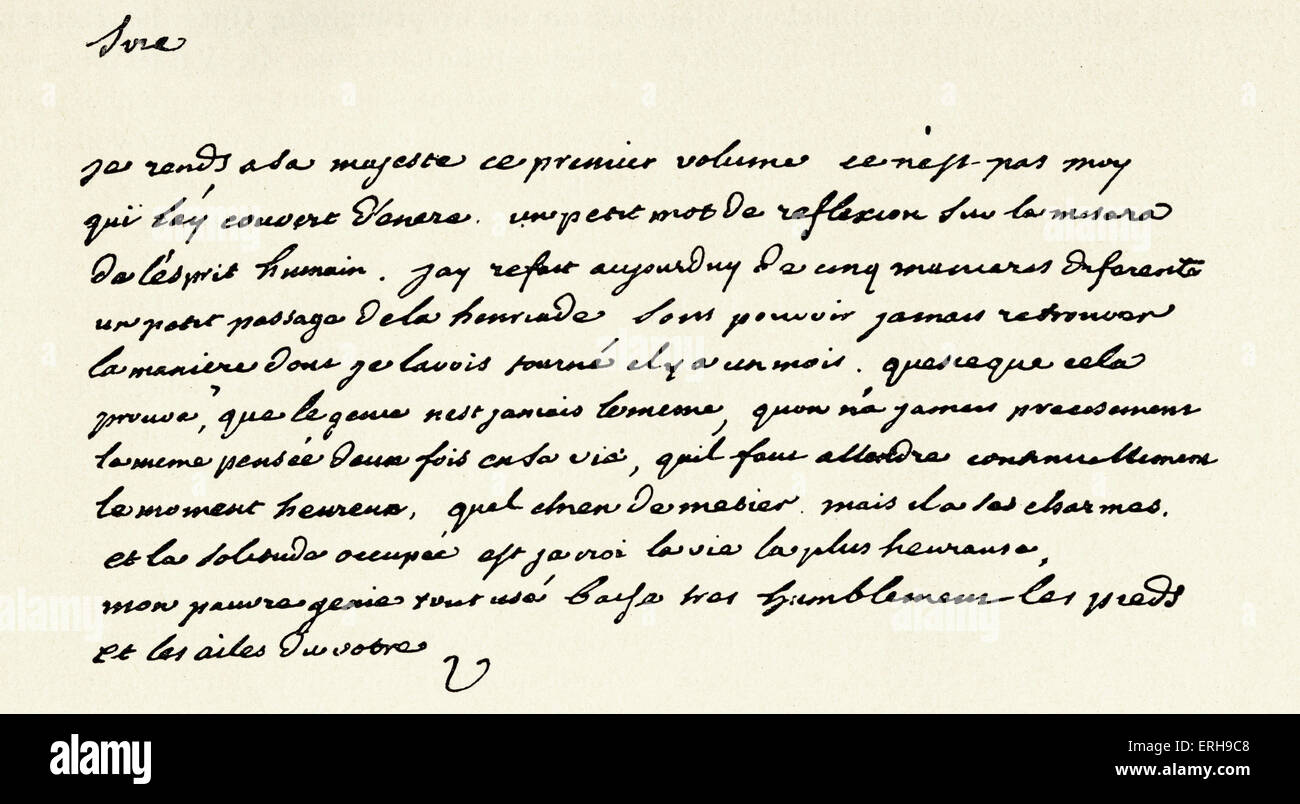 Sire
je rends a sa majeste ce premier volume ce n'est pas moy
qui l'ay couvert d'encre. un petit mot de reflexion sur la misere
de l'esprit humain. jay refait aujourduy de cinq manieres diferentes
un petit passage de la henriade sans pouvoir jamais retrouver
la maniere dont je lavois tourné il y a un mois. quesceque cela
prouve, que le genie nest jamais le meme, quon n'a jamais precisement
la meme pensée deux fois en sa vie, quil faut attendre continuellement
le moment heureux, quel chien de metier. mais il a ses charmes.
et la solitude occupée est je croi la vie la plus heureuse,
mon pauvre genie tout usé baise tres humblement les pieds
et les ailes du votre
V
alamy
Image ID: ERH9C8
www.alamy.com